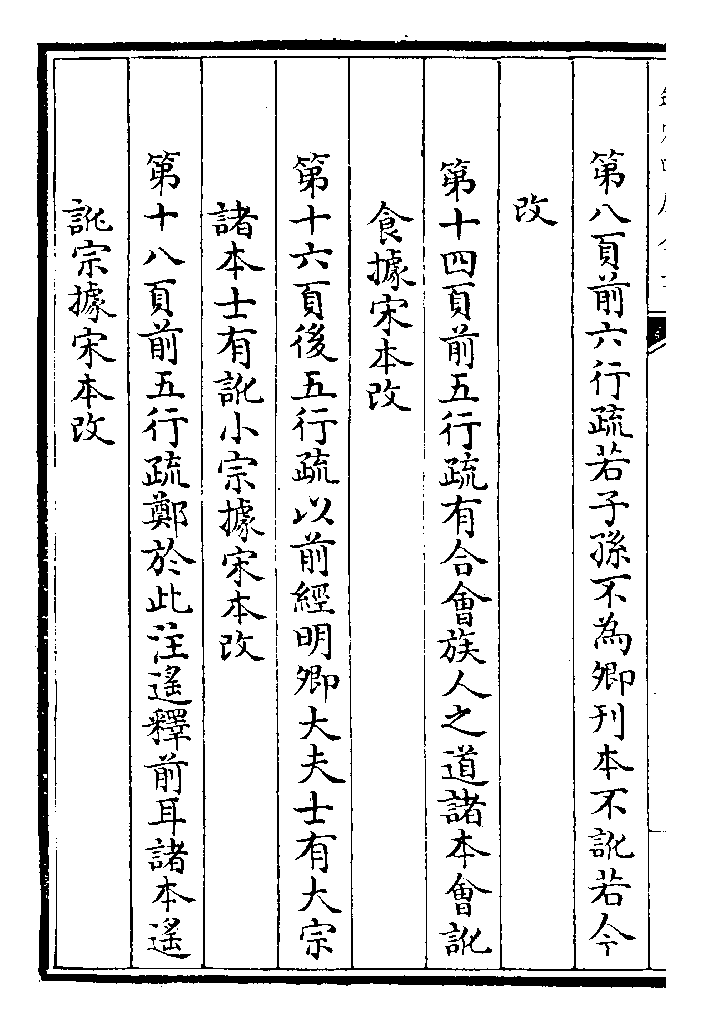 第八頁前六行疏若子孫不為卿刋本不訛若今
改
第十四頁前五行疏有合㑹族人之道諸本㑹訛
食據宋本改
第十六頁後五行疏以前經明卿大夫士有大宗
諸本士有訛小宗據宋本改
第十八頁前五行疏鄭於此注遙釋前耳諸本遙
訛宗據宋本改